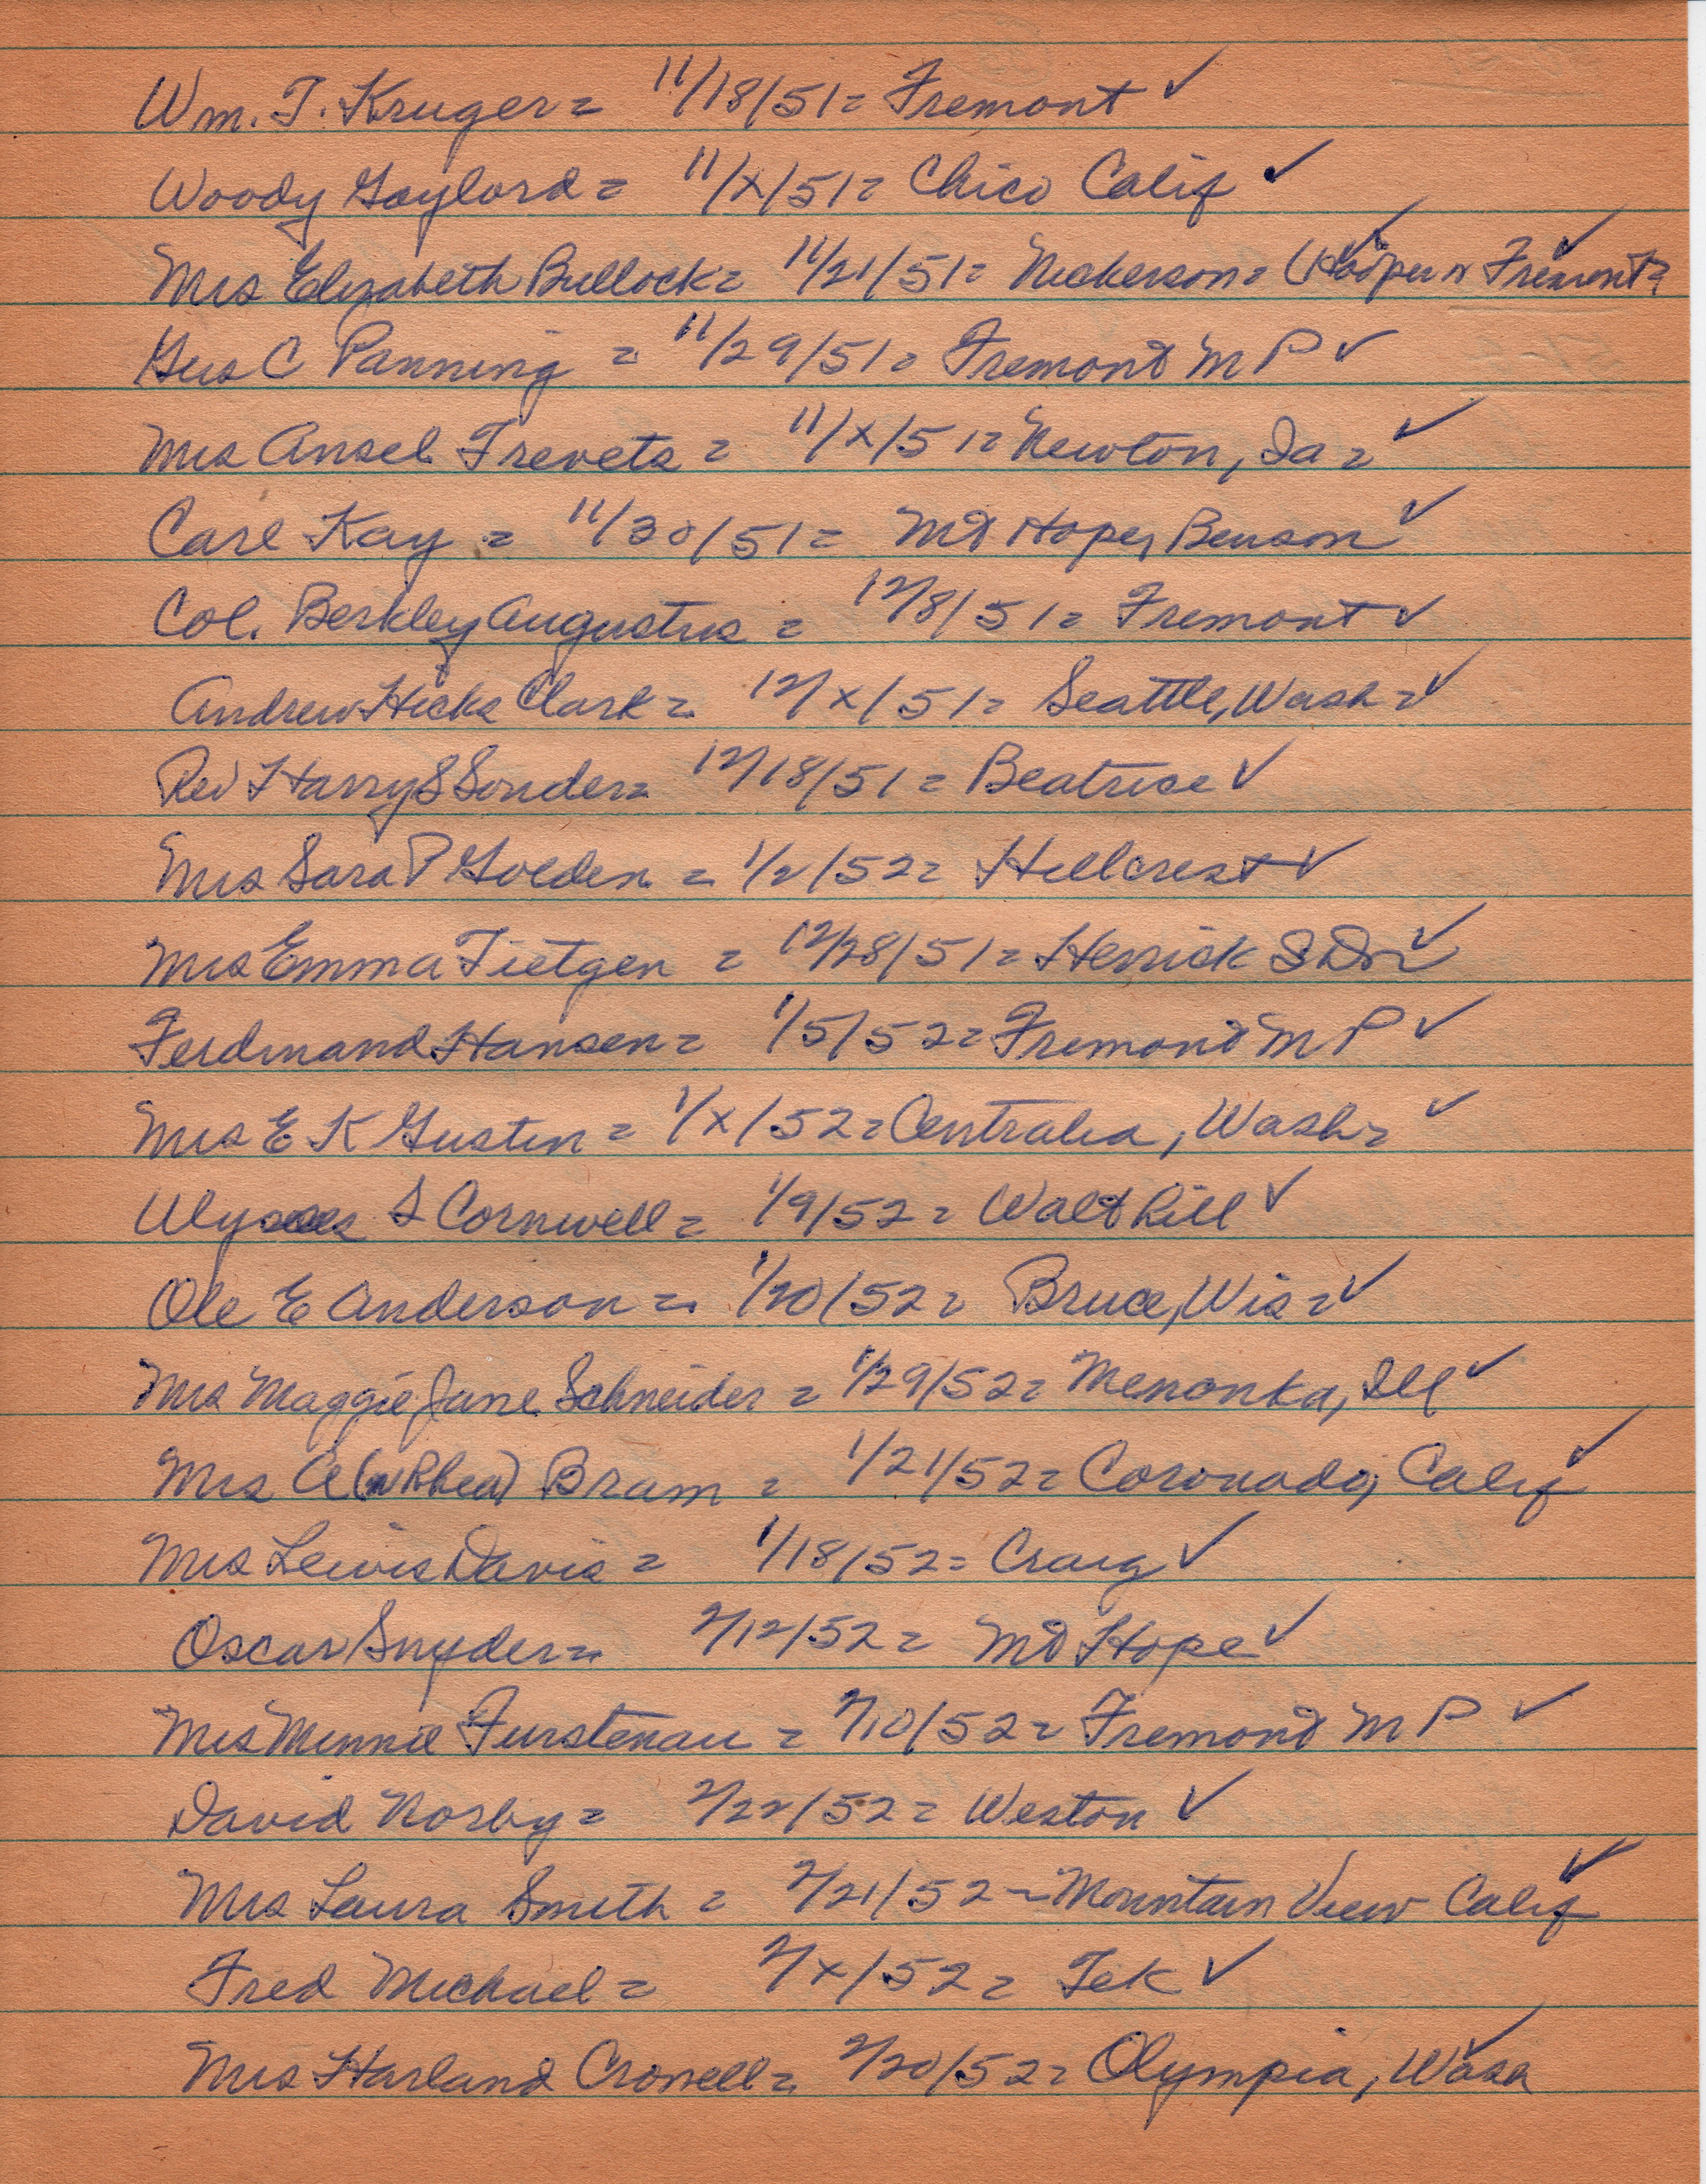 Wm. T. Kruger = 11/18/51 = Fremont ✓
Woody Gaylord = 11/x/51 = Chico Calif ✓
Mrs Elizabeth Bullock = 11/21/51 = Nickerson = (Hooper or Fremont?
Gus C Panning = 11/29/51 = Fremont M P ✓
Mrs Ansel Trevets = 11/x/51 = Newton, Ia = ✓
Carl Kay = 11/30/51 = Mt Hope, Benson ✓
Col. Berkley Augustus = 12/8/51 = Fremont ✓
Andrew Hicks Clark = 12/x/51 = Seattle, Wash = ✓
Rev Harry S Souder = 12/18/51 = Beatrice ✓
Mrs Sara P Golden = 1/2/52 = Hillcrest ✓
Mrs Emma Tietgen = 12/28/51 = Herrick S D = ✓
Ferdinand Hansen = 1/5/52 = Fremont M P ✓
Mrs E K Gustin = 1/x/52 = Centralia, Wash = ✓
Ulysses S Cornwell = 1/9/52 = Walthill ✓
Ole E Anderson = 1/20/52 = Bruce, Wis = ✓
Mrs Maggie Jane Schneider = 1/29/52 = Menonka, Ill ✓
Mrs A (Rhea) Bram = 1/21/52 = Coronado, Calif ✓
Mrs Lewis Davis = 1/18/52 = Craig ✓
Oscar Snyder = 2/12/52 = Mt Hope ✓
Mrs Minnie Furstenau = 2/10/52 = Fremont M P ✓
David Norby = 2/22/52 = Weston ✓
Mrs Laura Smith = 2/21/52 - Mountain View Calif ✓
Fred Michael = 2/x/52 = Tek ✓
Mrs Harland Cronell = 2/20/52 = Olympia, Wash ✓